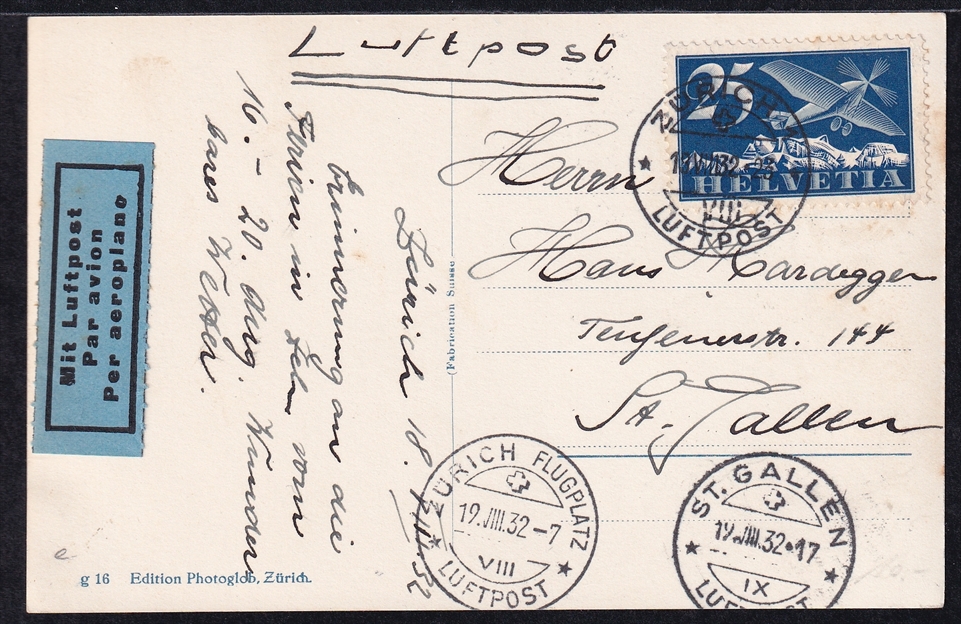 Luftpost
25
HELVETIA
ZÜRICH
VIII
LUFTPOST
Herrn
Hans Kardegger
Teufenerstr. 144
St. Gallen
Mit Luftpost
Par avion
Per aeroplano
Zürich 18. VIII 32
Erinnerung an die
Ferien in vom
16. – 20. Aug. Wunder-
bares Wetter.
(Fabrication Suisse
ZÜRICH FLUGPLATZ
19.VIII.32–7
VIII
LUFTPOST
ST. GALLEN
19.VIII.32•17
IX
LUFTPOST
g 16 Edition Photoglob, Zürich.
e